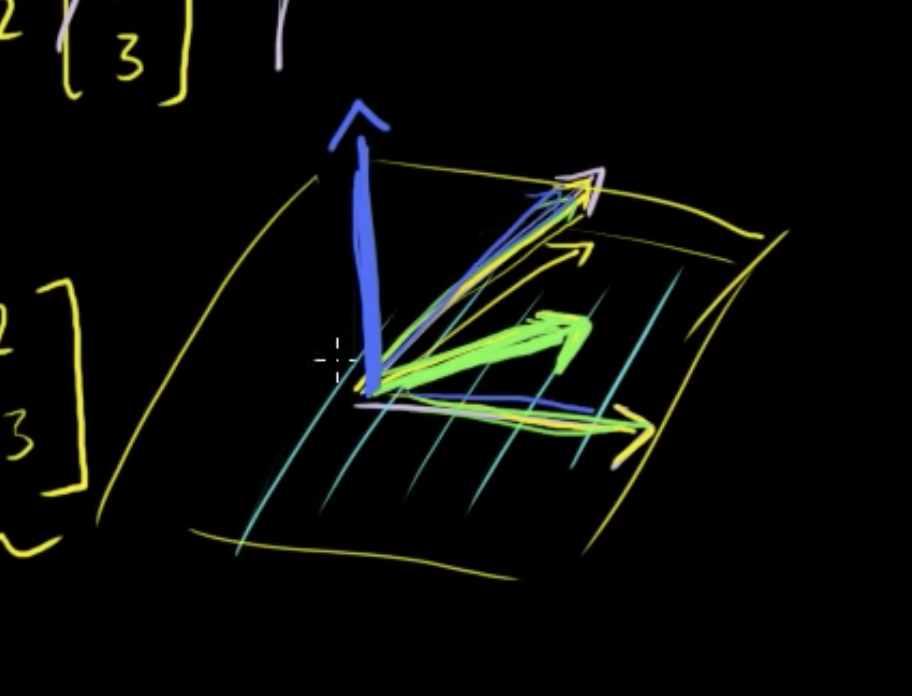 2
3
2
3